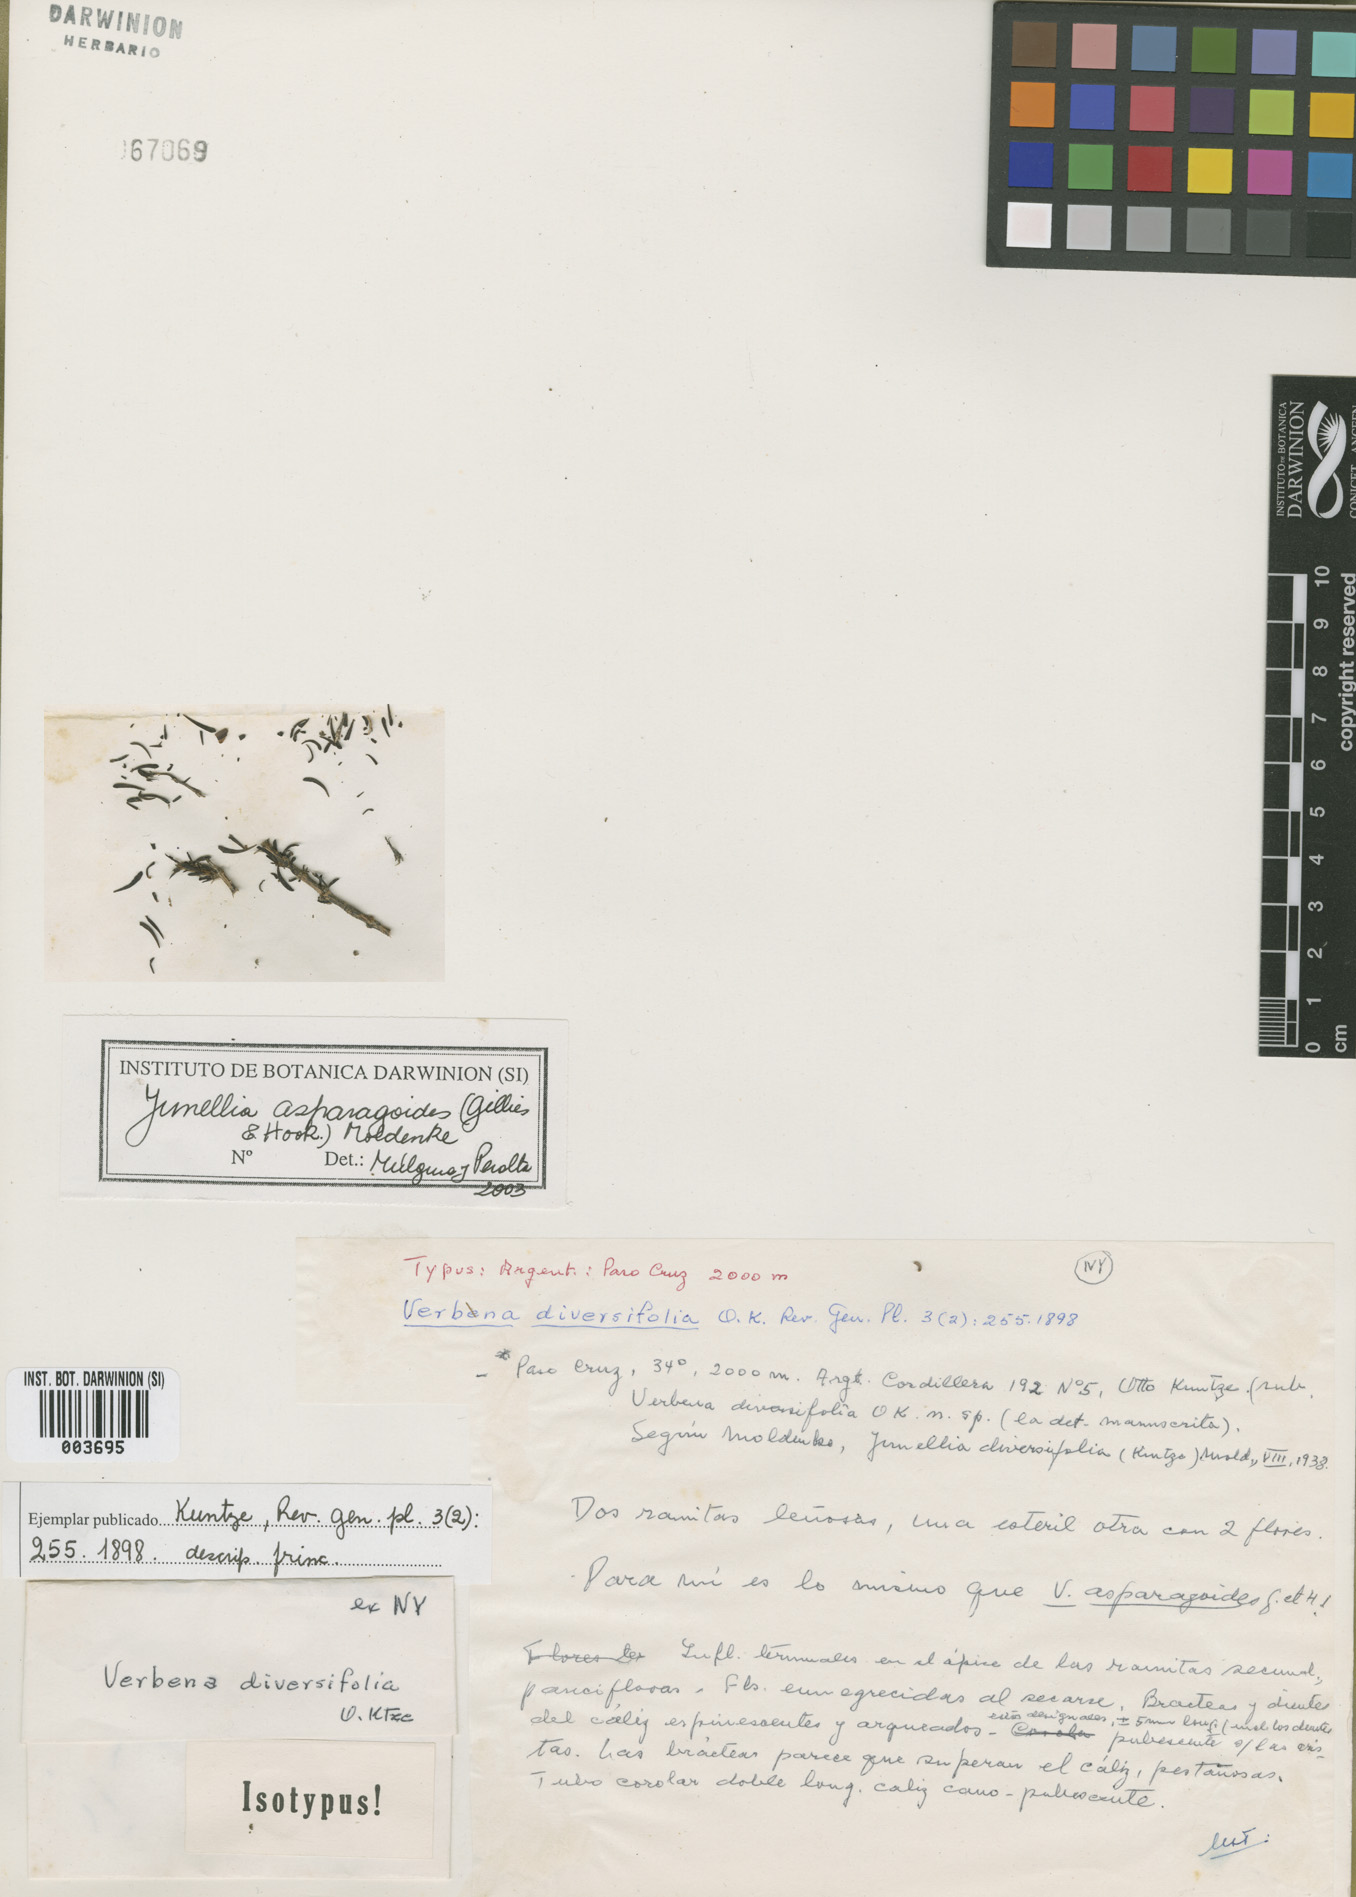 DARWINION
HERBARIO
67069
INSTITUTO DE BOTANICA
DARWINION
CONICET - ANCEFN
10
9
8
7
6
5
4
3
2
1
0
cm
copyright reserved
INSTITUTO DE BOTANICA DARWINION (SI)
Junellia asparagoides (Gillies
& Hook.) Moldenke
Nº Det.: Múlgura y Peralta
2003
Typus: Argent.: Paso Cruz 2000 m
NY
Verbena diversifolia O.K. Rev. Gen. Pl. 3(2): 255. 1898
- * Paso Cruz, 34°, 2000 m. Argt. Cordillera 192 Nº5, Otto Kuntze. (sub.
Verbena diversifolia OK. n. sp. (la det. manuscrita).
Según Moldenke, Junellia diversifolia (Kuntze) Mold., VIII, 1938.
Dos ramitas leñosas, una esteril otra con 2 flores.
Para mí es lo mismo que V. asparagoides G. et H!
Flores ter Infl. terminales en el ápice de las ramitas secund.,
paucifloras. Fls. ennegrecidas al secarse. Bracteas y dientes
del cáliz espinescentes y arqueados - estos desiguales, ± 5mm long. (incl. los dientes
Corola pubescente s/las cris-
tas. Las brácteas parece que superan el cáliz, pestañosas.
Tubo corolar doble long. caliz cano-pubescente.
INST. BOT. DARWINION (SI)
003695
Ejemplar publicado Kuntze, Rev. gen. pl. 3(2):
255. 1898. descrip. princ.
ex NY
Verbena diversifolia
O. Ktze
Isotypus!